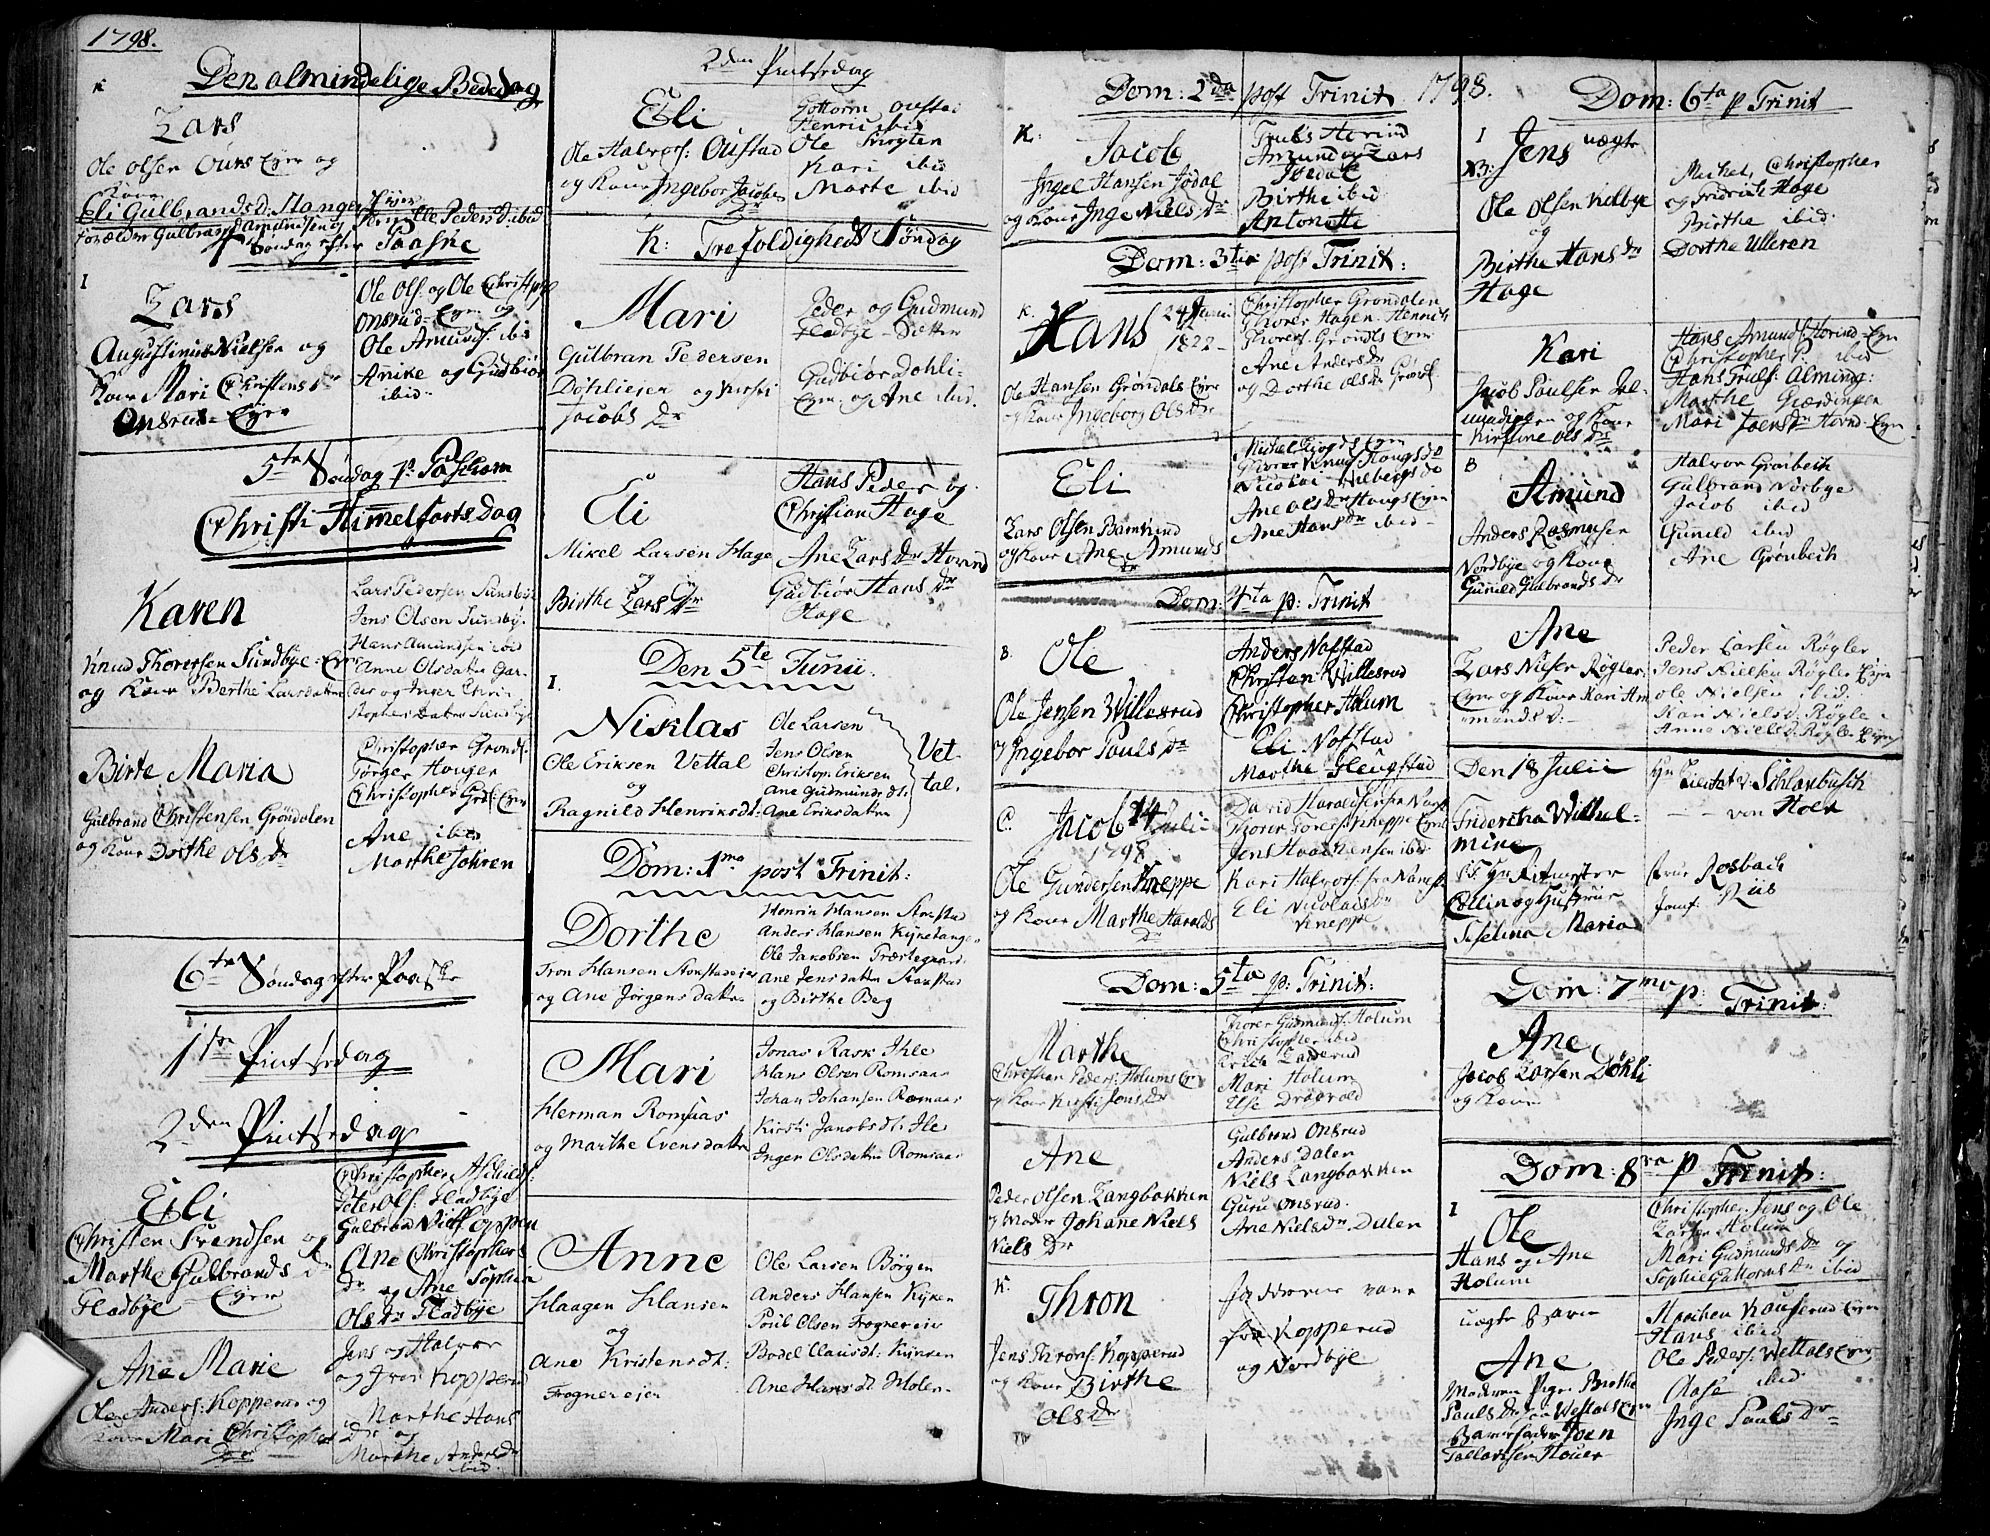 1798.
Den almindelige Bededag
Lars
Ole Olsen Ours Eyer og
Kone
Eli Gulbrandsd: Hanger
4 Søndag efter Paaske
I
Lars
Augustinus Nielsen og
Kone Mari Christens Dr
Onsrud-Eyer
Ole Ols. og Ole Christoph
Onsrud-Eyer og
Ole Amunds. ibid
Anike og Gudbiør
ibid
5te Søndag p. Pascham
Christi Himmelfarts Dag
Karen
Knud Thoresen Sundbye-Eyer
og Kone Berthe Larsdatter
Lars Pedersen Sundbye
Jens Olsen Sundby.
Hans Amundsen ibid
Anne Olsdatter Gar-
der og Inger Chri-
stophersdatter Sundbye
Birte Maria
Gulbrand Christensen Grøndalen
og Kone Dorthe Ols Dr
Christopher Grønds.
Tørger Houger
Christopher
Ane ibid
Marthe Johren
6te Søndag efter Paaske
1ste Pintsedag
2den Pintsedag
Eli
Christen Svendsen og
Marthe Gulbrands Dr
Fladbye - Eyer
Christopher
Peter Ols: Fladbye
Gulbran
Ane Christophers
Dr og Ane Sophia
Ols Dr Fladbye
Ane Marie
Ole Anders: Kopperud og
Kone Mari Christophers
Dr
Jens og Halvor
og Iver Kopperud
Marthe Hans
Dr og
Marthe Anders Dr
ibid
2den Pintsedag
Eli
Ole Halvors: Oustad
og Kone Ingebor Jacobs
Dr
Gottorm Oustad
Henric ibid
Ole
Kari ibid
Marte ibid
K: Trefoldigheds Søndag
Mari
Gulbran Pedersen
Døhliejer og Kirsti
Jacobs Dr
Peder og Gudmund
Fladbye-Sætter
Gudbiør Døhli-
Eyer og Ane ibid.
Eli
Mikel Larsen Hage
og
Birthe Lars Dr
Hans Peder og
Christian Hage
Ane Lars Dr Hovind
Gudbiør Hans Dr
Hage
Den 5te Junii.
I.
Niklas
Ole Eriksen Vettal
og
Ragnild Henriksdt:
Ole Larsen
Jens Olsen
Christoph Eriksen
Ane Gudmundsdt:
Ane Eriksdatter
Vet-
tal.
Dom: 1ma post Trinit:
Dorthe
Tron Hansen Stonstadeier
og Ane Jørgensdatter
Henrik Hansen Stonstad
Anders Hansen Kykelange
Ole Jacobsen Træstegaard
Ane Jensdatter Stonstad
og Birthe Berg
Mari
Herman Romsaas
og Marthe Evensdatter
Jonas Rask Ihle
Hans Olsen Romsaas
Johan Johansen Romsaas
Kirsti Jacobsdt: Ile
Inger Olsdatter Romsaas
Anne
Haagen Hansen
og
Ane Kristensdt:
Frogner ejer
Ole Larsen Børgen
Anders Hansen
Poul Olsen Frogner eie
Bodel Clausdt:
Ane Hansdt Holen
Dom: 2da post Trinit 1798.
K.
Jacob
Ingel Hansen Jødal
og Kone Inge Niels Dr
Truls Hovind
Amund og Lars
Jødal
Birthe ibid
Antonette
Dom: 3tia post Trinit:
K.
Hans 24 Junii
1822
Ole Hansen Grøndals Eyer
og Kone Ingeborg Ols Dr
Christopher Grøndalen
Thorer Hagen Henrich
Thorers. Grøndls Eyer
Ane Anders Dr
og Dorthe Ols Dr
Eli
Lars Olsen
og Kone Ane Amunds
Dr
Ane Ols Dr Haugs Eyer
Ane Hans Dr ibid
Dom: 4ta p: Trinit
B.
Ole
Ole Jensen Willesrud
og Ingebor Pauls Dr
Anders Nafstad
Christen Willesrud
Christopher Holum
Eli Nafstad
Marthe Fleugstad
C.
Jacob 14 Julii
1798
Ole Gundersen Kneppe
og Kone Marthe Haralds
Dr
David
Jens Haachensen ibid
Kari Halvors: fra
Eli Nicolaids Dr
Kneppe
Dom: 5ta p: Trinit:
Marthe
Christian Peders: Holums Eyer
og Kone Kirsti Jens Dr
Thorer Gudmunds: Holum
Christopher ibid
Mari Holum
Else Dragvold
Ane
Peder Olsen Langbakken
og Moder Johane Niels
Niels Dr
Gulbrand Onsrud
Anders Dalen
Niels Langbakken
Guru Onsrud.
Ane Niels Dr Dalen
K.
Thron
Jens Throns: Kopperud
og Kone Birthe
Ols Dr
fadderne vare
fra Kopperud
og Nordbye
Dom: 6ta p Trinit
I
Jens uægte
Ole Olsen Kielbye
og
Birthe Hans Dr
Hage
Michel, Christopher
og Fridrich Hage
Birthe ibid.
Dorthe Ulleren
Kari
Jacob Paulsen
og Kone
Kirstine Ols Dr
Hans Amunds: Hovind-Eyer
Christopher P. ibid
Hans Truls: Alming:
Marthe Gierdingen
Mari Joens Dr Hovind-Eyer
B
Amund
Anders Rasmusen
Nordbye og Kone
Gunild Gulbrands Dr
Halvor Grønbech
Gulbrand Nordbye
Jacob ibid
Gunild ibid
Ane Grønbech
Ane
Lars Nielsen Røgler
Eyer og Kone Kari Am
munds d:
Peder Larsen Røgler
Jens Nielsen Røgler Eyer
Ole Nielsen ibid.
Kari Nielsd. Røgle
Anne Nielsd. Røgler Eyer
Den 18 Julii
Friderica Wilhel-
mine
Hr Ritmester
Collin og Hustrue
Iselina Maria
Hr Lieutn: Schlanbusch
- - von Holn
Frue Rosbach
Jomf. Riis
Dom: 7ma p: Trinit:
Ane
Jacob Larsen Døhli
og Kone
Dom: 8va p Trinit:
I
Ole
Hans og Ane
Holum
Christopher, Jens og Ole
Larsen Holum
Mari Gudmunds Dr og
Sophie Guttorms Dr ibid
uægte Barn
Ane
Moderen Pige Birthe
Pauls Dr fra Wettals Eyer
Barnefader Joen
Tollevsen Houer
Haachen Kauserud Eyer
Hans ibid
Ole Peders: Wettals Eyer
Aase ibid.
Inge Pauls Dr